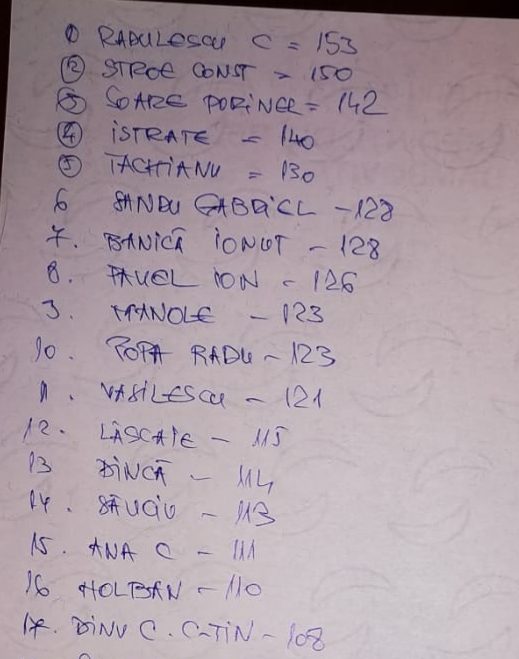 1 RADULESCU C = 153
2 STROE CONST = 150
3 SOARE DORINEL = 142
4 ISTRATE = 140
5 TACHIANU = 130
6 SANDU GABRIEL - 128
7. BANICĂ IONUT - 128
8. PAVEL ION - 126
9. MANOLE - 123
10. POPA RADU - 123
11. VASILESCU - 121
12. LĂSCAIE - 115
13 DINCĂ - 114
14. SĂUCIU - 113
15. ANA C - 111
16 HOLBAN - 110
17. DINU C. C-TIN - 108